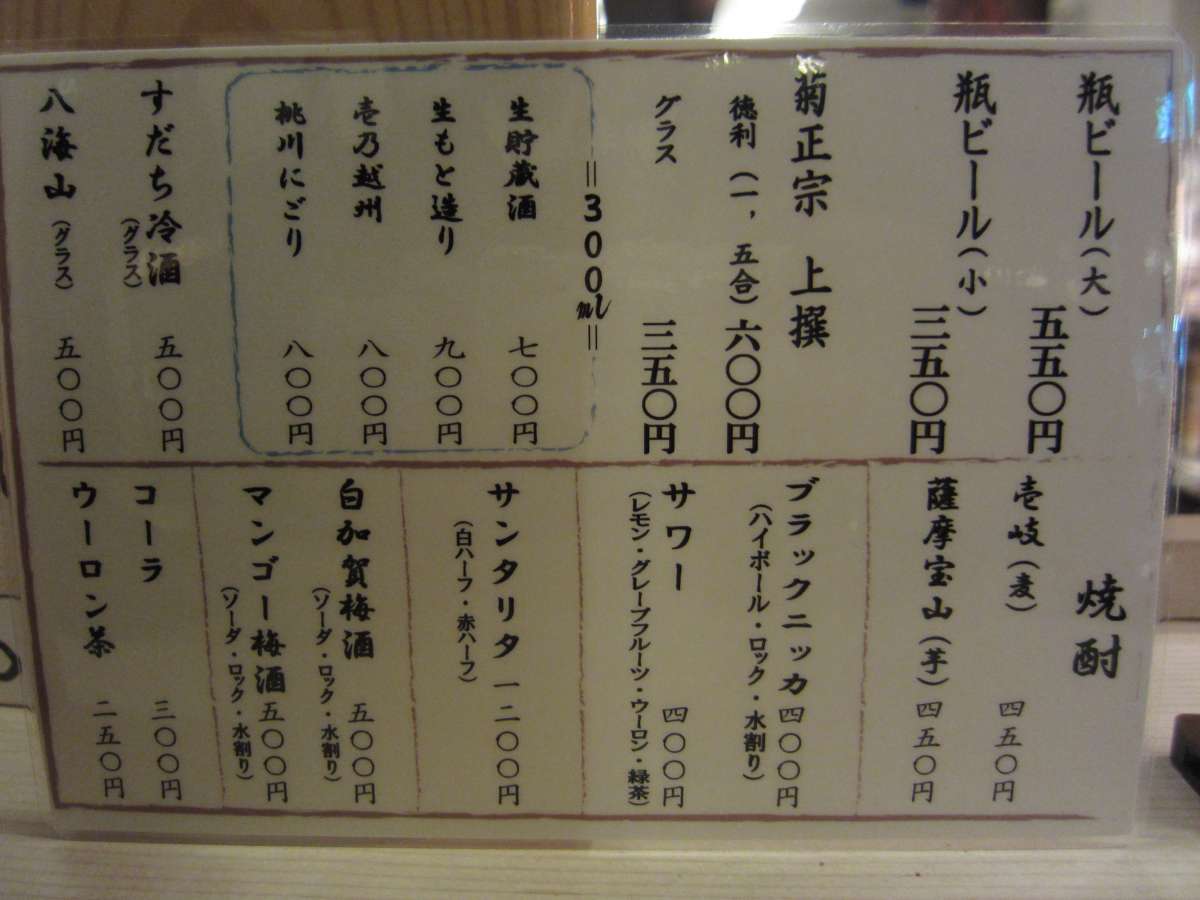 瓶ビール(大) 五五〇円
瓶ビール(小) 三五〇円
菊正宗 上撰
徳利(一,五合) 六〇〇円
グラス 三五〇円
=300ml=
生貯蔵酒 七〇〇円
生もと造り 九〇〇円
壱乃越州 八〇〇円
桃川にごり 八〇〇円
すだち冷酒(グラス) 五〇〇円
八海山(グラス) 五〇〇円
焼酎
壱岐(麦) 四五〇円
薩摩宝山(芋) 四五〇円
ブラックニッカ 四〇〇円
(ハイボール・ロック・水割り)
サワー 四〇〇円
(レモン・グレープフルーツ・ウーロン・緑茶)
サンタリタ 一二〇〇円
(白ハーフ・赤ハーフ)
白加賀梅酒 五〇〇円
(ソーダ・ロック・水割り)
マンゴー梅酒 五〇〇円
(ソーダ・ロック・水割り)
コーラ 三〇〇円
ウーロン茶 二五〇円